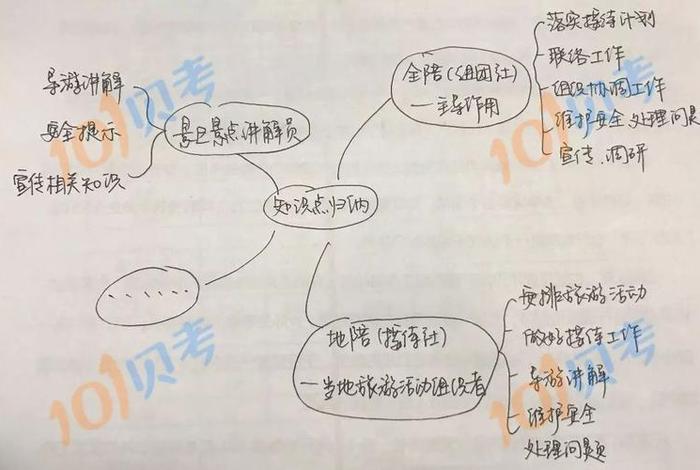 知识点归纳
全陪(组团社)
—主导作用
落实接待计划
联络工作
组织协调工作
维护安全 处理问题
宣传、调研
景区景点讲解员
导游讲解
安全提示
宣传相关知识
......
地陪(接待社)
—当地旅游活动组织者
安排旅游活动
做好接待工作
导游讲解
维护安全
处理问题
101贝考
101贝考
101贝考
101贝考